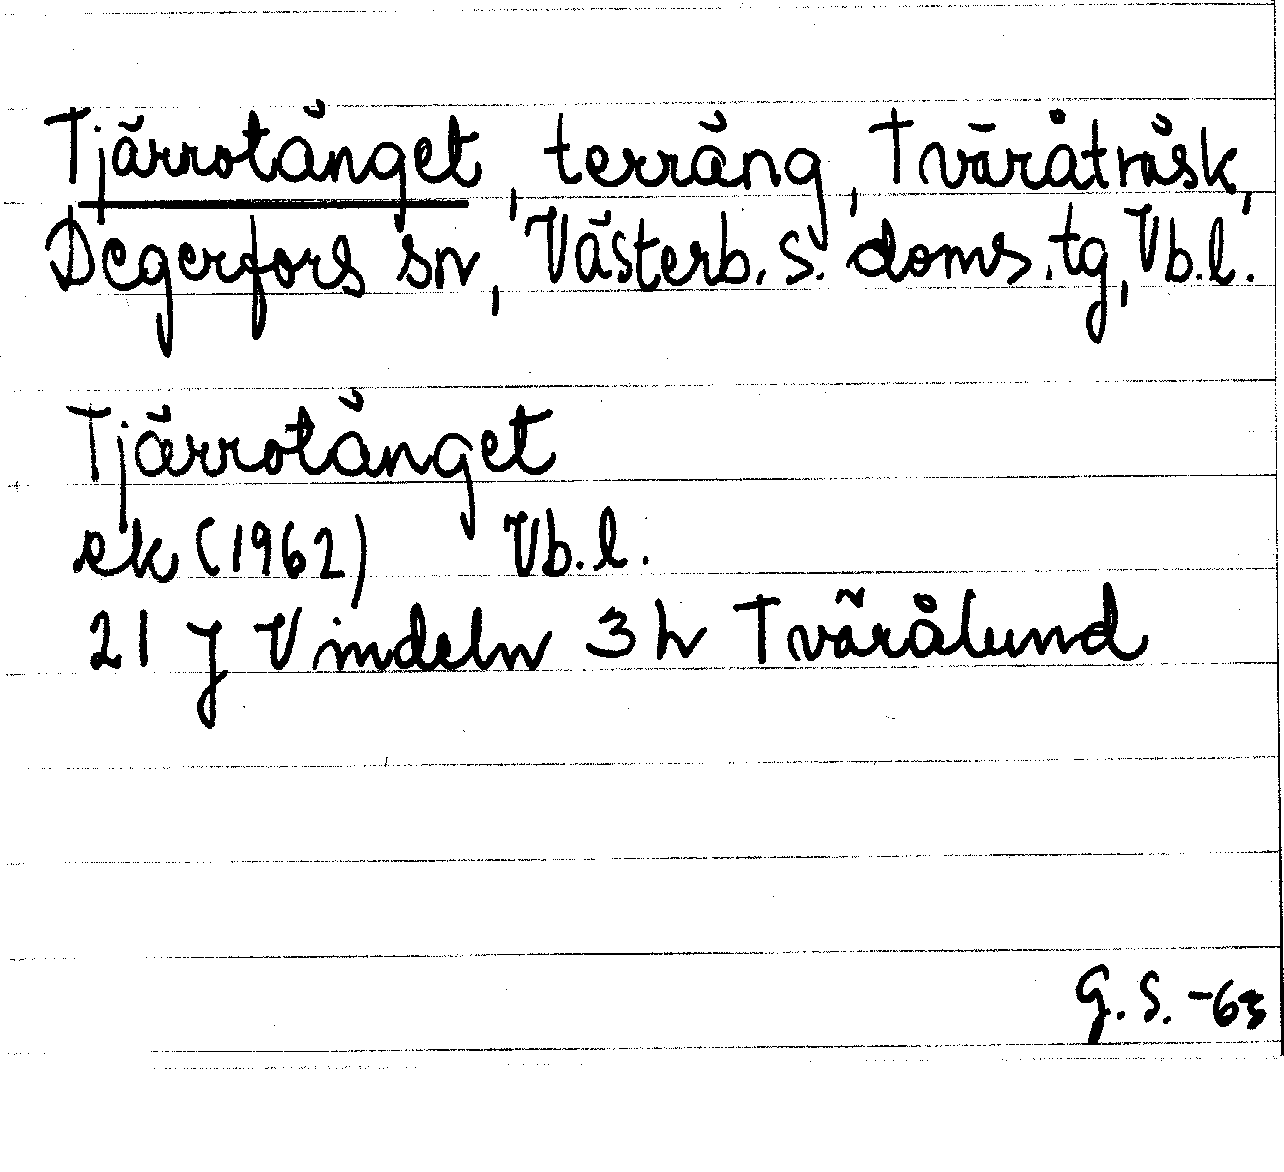 Tjärrotänget, terräng, Tväråträsk,
Degerfors sn, Västerb. s. doms. tg, Vb. l.
Tjärrotänget
ek (1962) Vb. l.
21 J Vindeln 3 h Tvärålund
G. S. -63